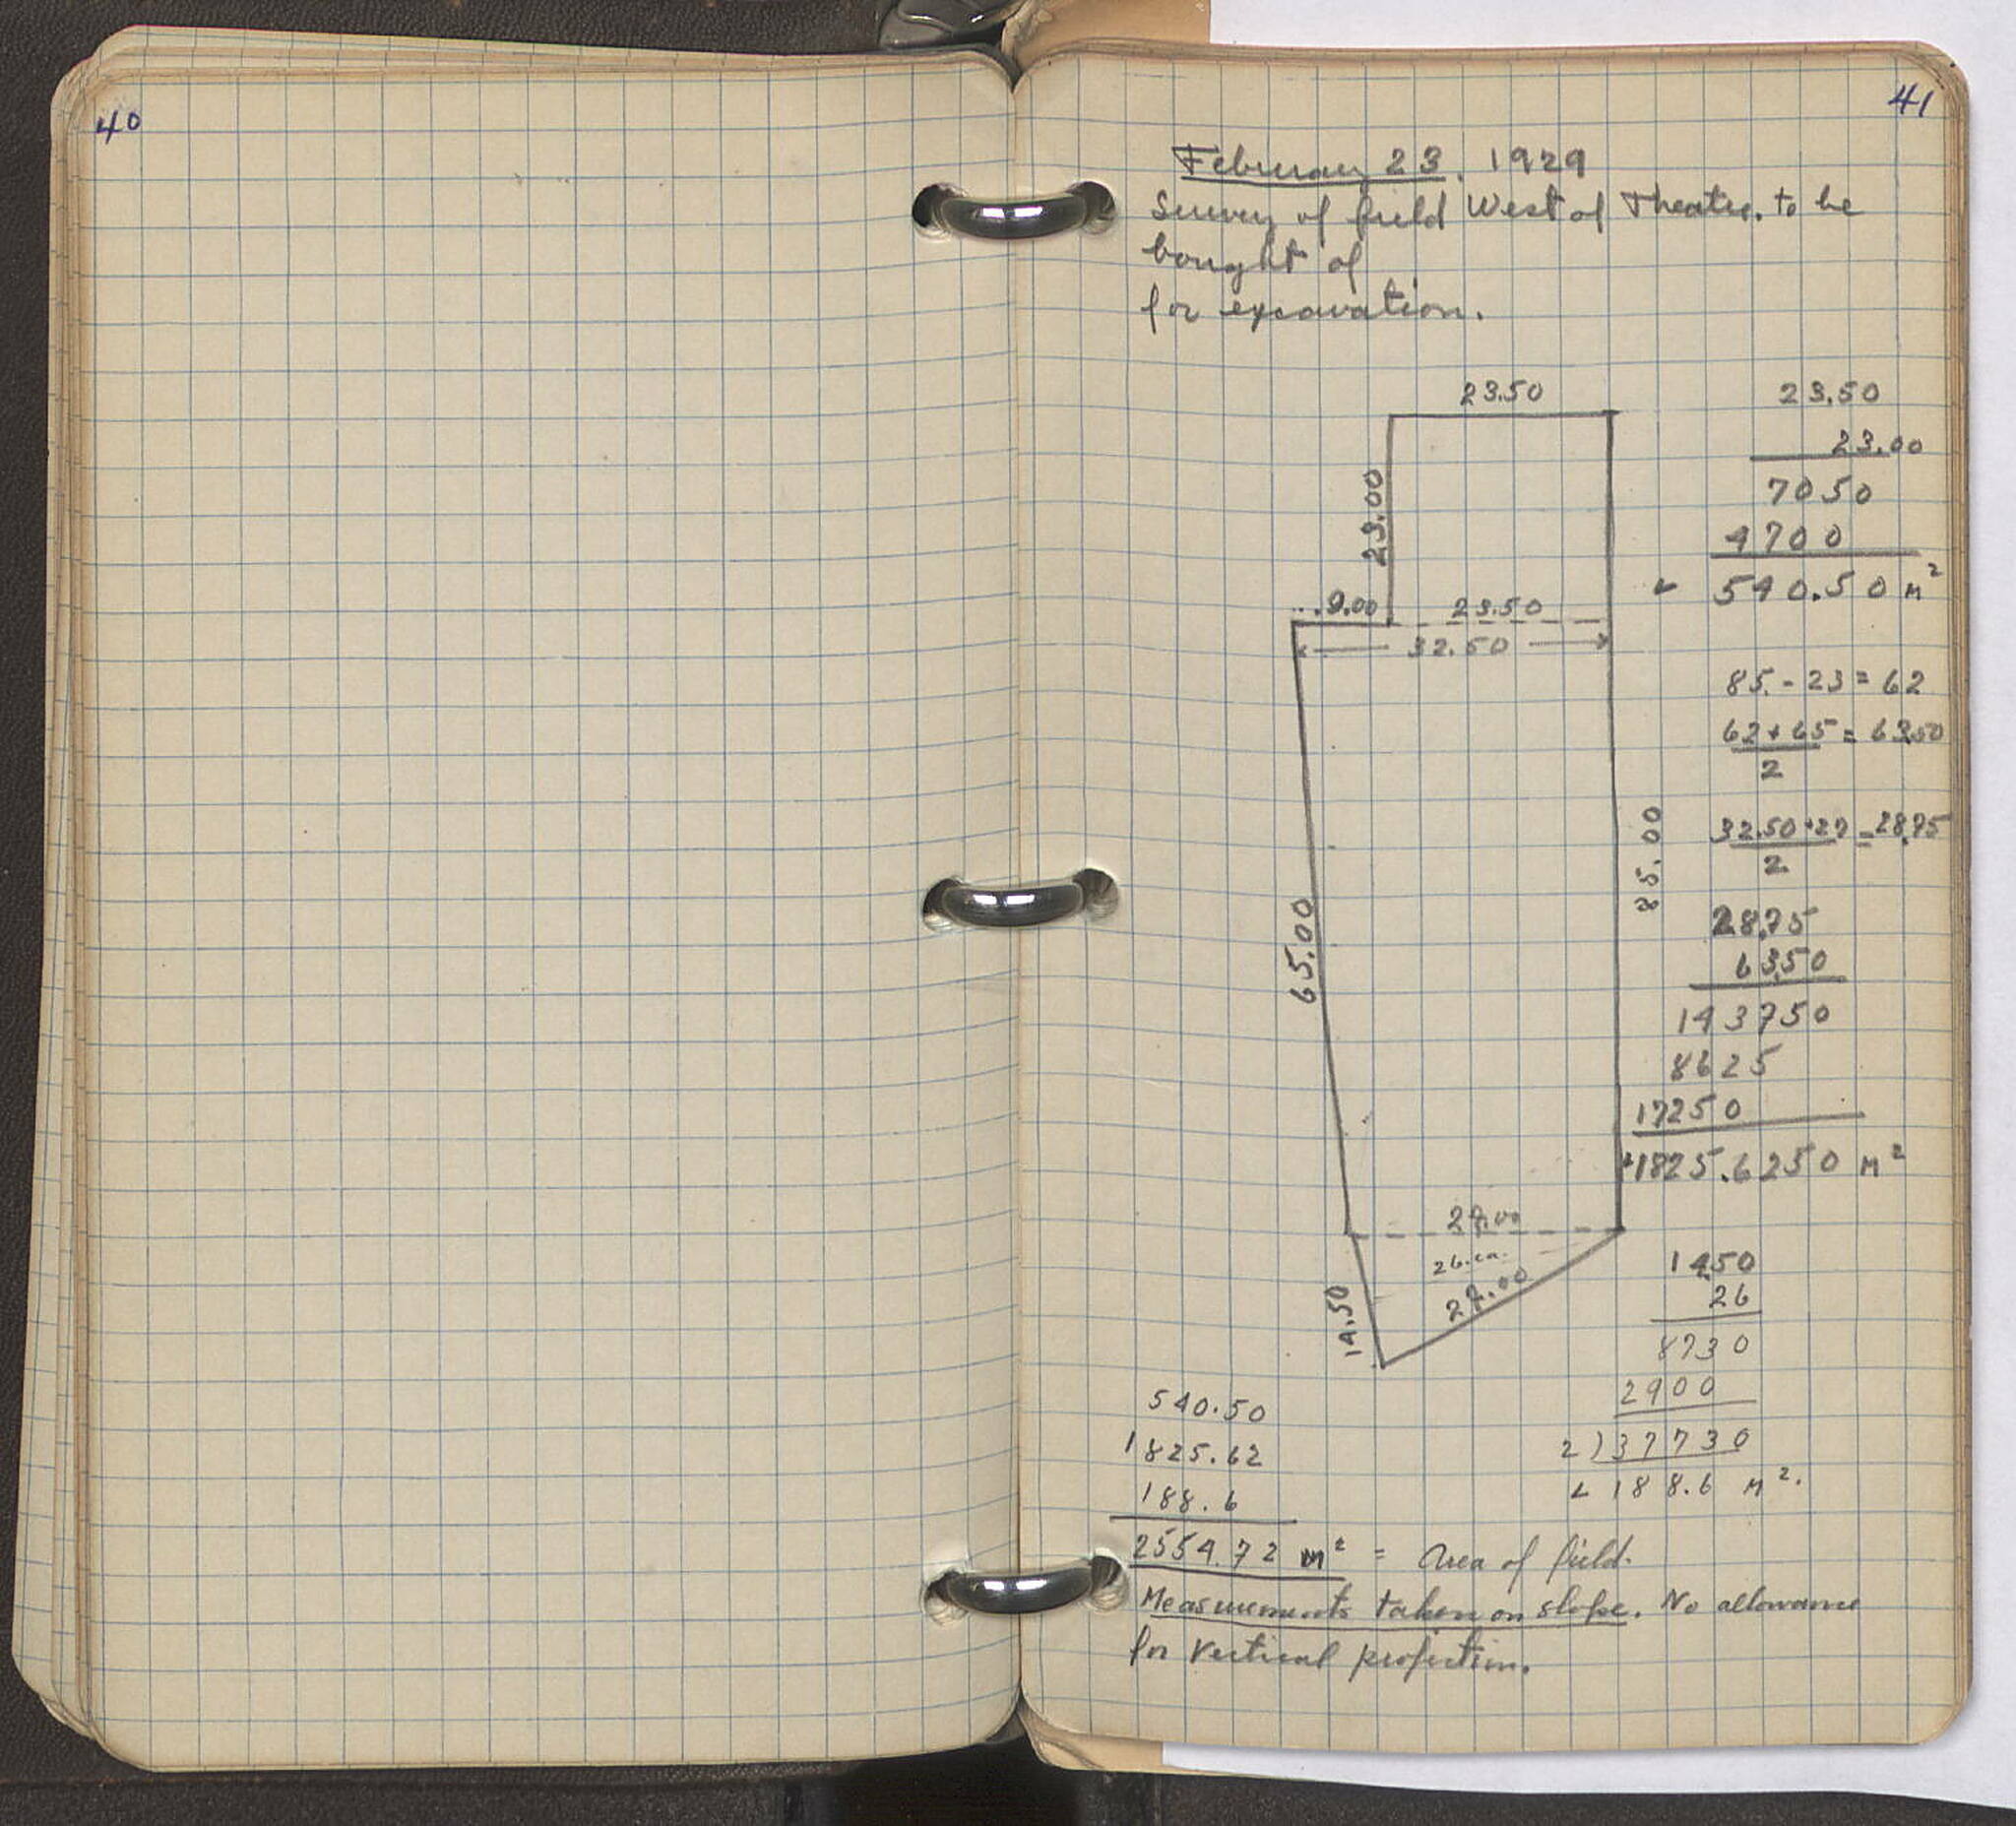 40
41
February 23. 1929
Survey of field West of Theatre. to be
bought of
for excavation.
23.50
23.00
9.00
23.50
32.50
65.00
85.00
27.00
26.ca.
27.00
14.50
23.50
23.00
7050
4700
540.50 M²
85.-23=62
62+65 = 63.50
2
32.50+27 = 28.75
2
28.75
63.50
143750
8625
17250
1825.6250 M²
14.50
26
8730
2900
2)37730
188.6 M².
540.50
1825.62
188.6
2554.72 M² = Area of field.
Measurements taken on slope. No allowance
for vertical projection.